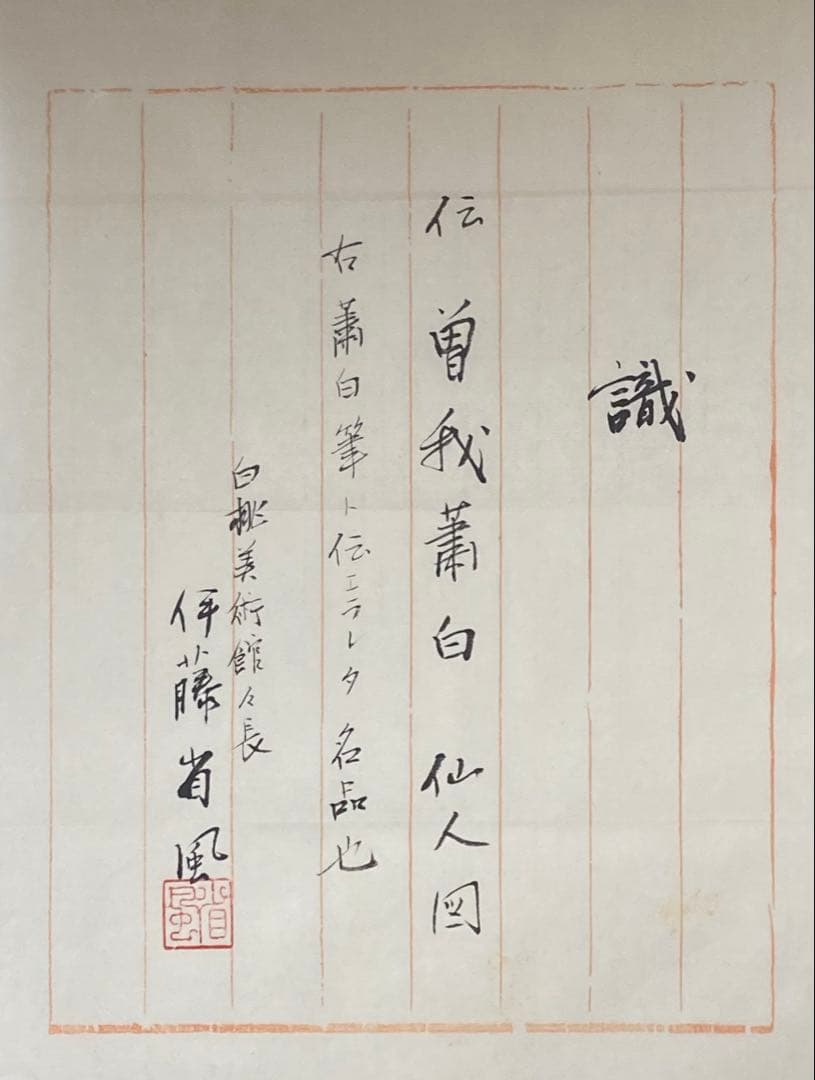 識
伝 曽我蕭白 仙人図
右蕭白筆ト伝エラレタ名品也
白桃美術館々長
伊藤省風
省風